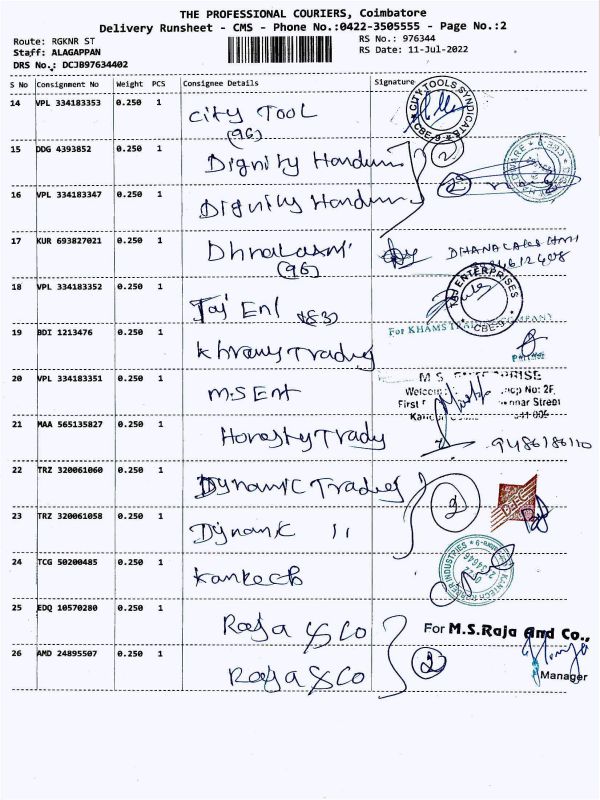 THE PROFESSIONAL COURIERS, Coimbatore
Delivery Runsheet - CMS - Phone No.:0422-3505555 - Page No.:2
Route: RGKNR ST
RS No.: 976344
Staff: ALAGAPPAN
RS Date: 11-Jul-2022
DRS No.: DCJB97634402
S No Consignment No Weight PCS Consignee Details Signature
14 VPL 334183353 0.250 1 City TOOL
(96)
CITY TOOLS SYNDICATE
CBE-9
15 DDG 4393852 0.250 1 Dignity
2
16 VPL 334183347 0.250 1 Dignity
2
17 KUR 693827021 0.250 1
(96)
DHANALAKSHMI
18 VPL 334183352 0.250 1 Taj Ent (83)
TAJ ENTERPRISES
CBE-9
For KHAMS TRADING COMPANY
Partner
19 BDI 1213476 0.250 1 Trading
20 VPL 334183351 0.250 1 M.S Ent
M.S. ENTERPRISE
Shop No: 2F,
First
Street
21 MAA 565135827 0.250 1 Honesty Trady
9486186110
22 TRZ 320061060 0.250 1 Dynamic Trading
2
23 TRZ 320061058 0.250 1 Dynamic 11
24 TCG 50200485 0.250 1 Kantech
KANTECH RUBBER INDUSTRIES
25 EDQ 10570280 0.250 1 Raja & Co
For M.S.Raja And Co.,
26 AMD 24895507 0.250 1 Raja & Co
2
Manager